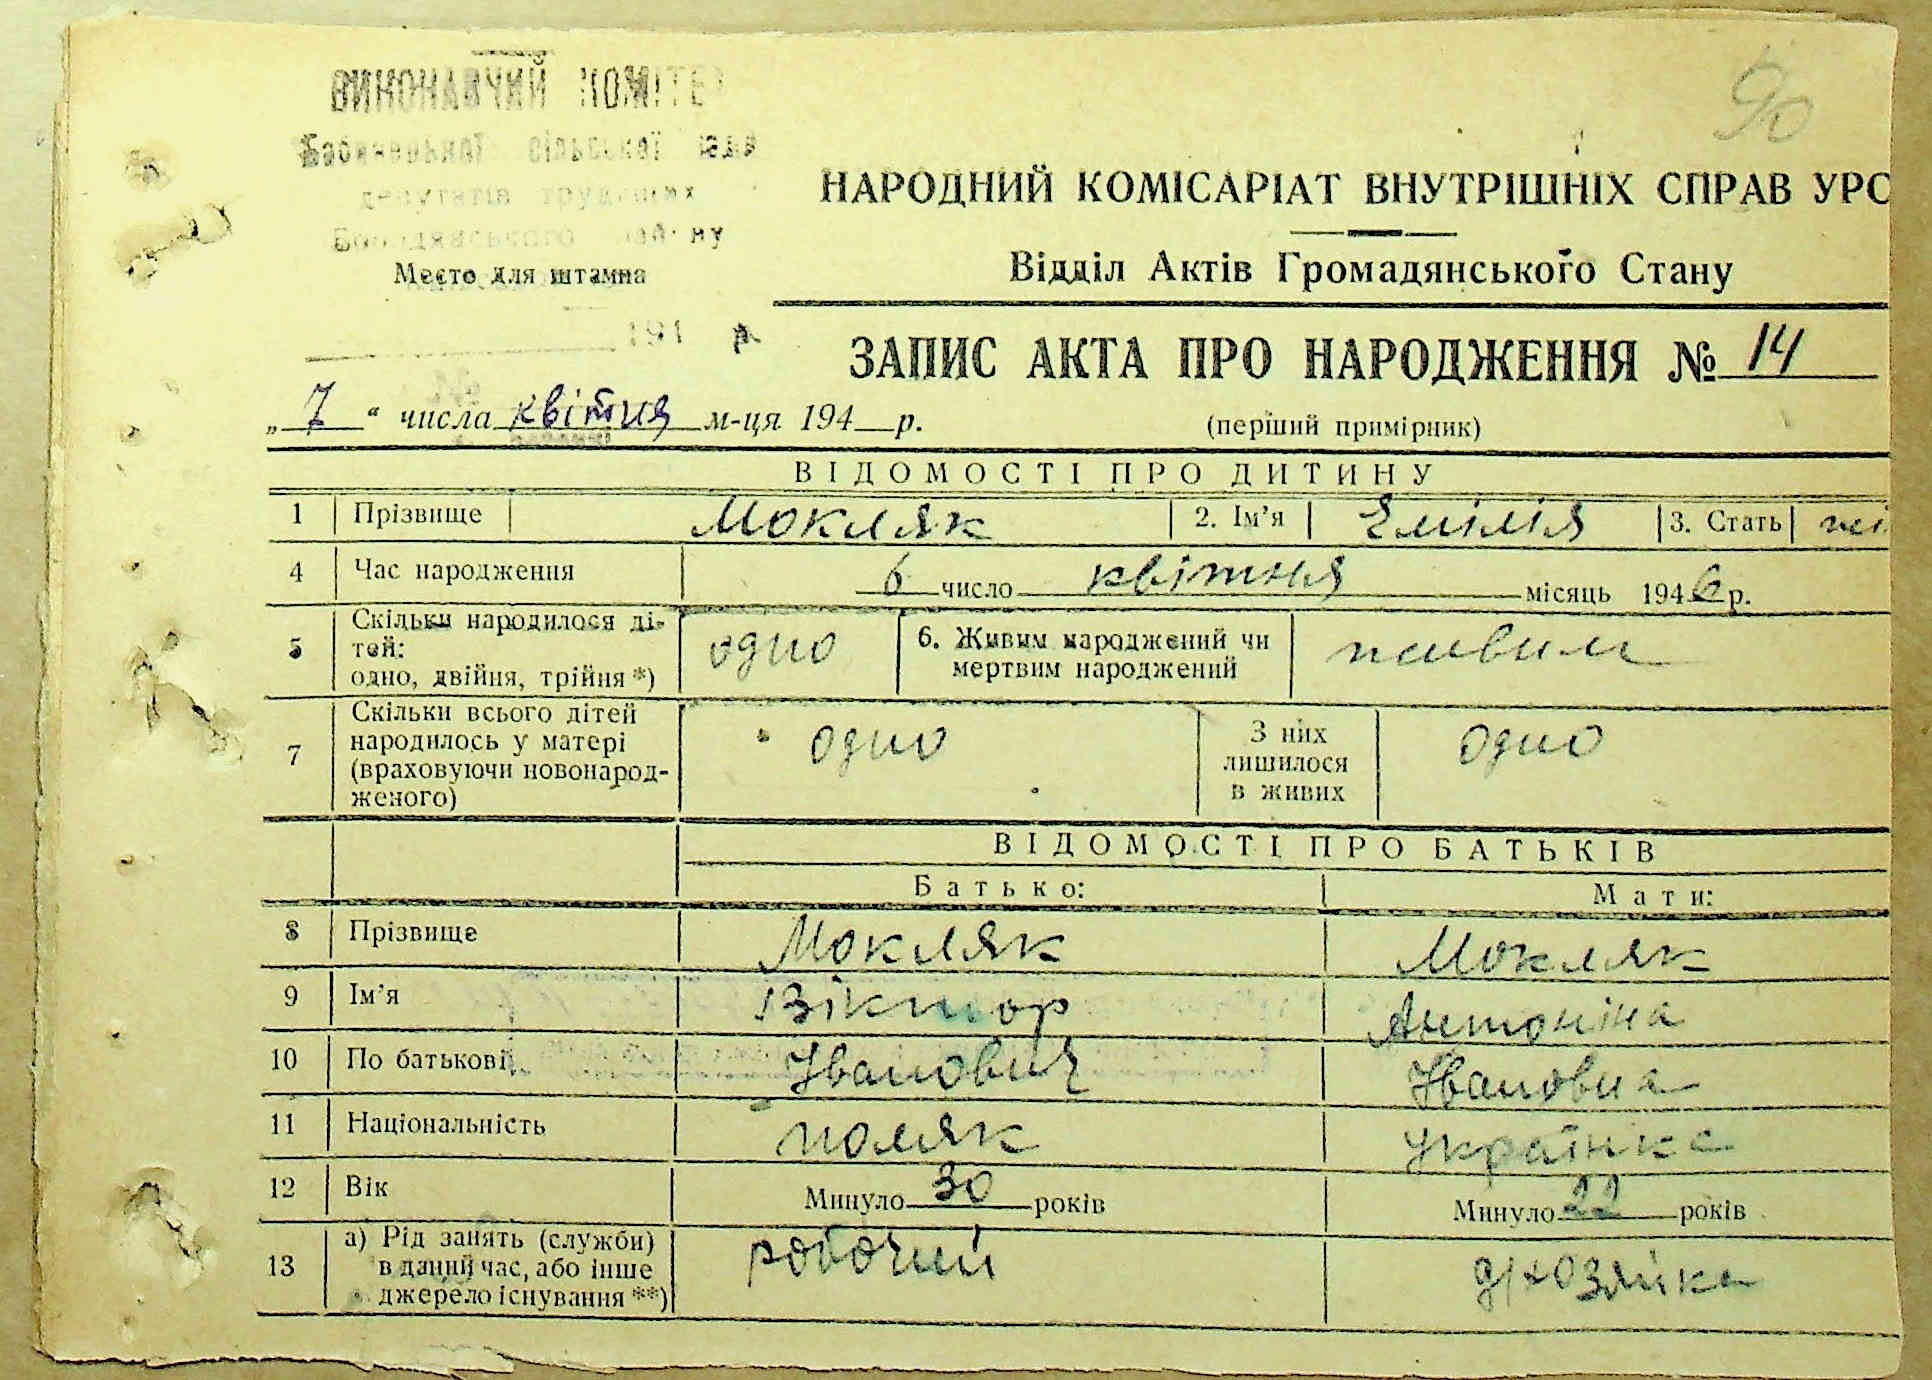 90
ВИКОНАВЧИЙ КОМІТЕТ
сільської ради
депутатів трудящих
Бородянського району
Место для штампа
194 р.
НАРОДНИЙ КОМІСАРІАТ ВНУТРІШНІХ СПРАВ УРС
Відділ Актів Громадянського Стану
ЗАПИС АКТА ПРО НАРОДЖЕННЯ № 14
„7“ числа квітня м-ця 194 р.
(перший примірник)
ВІДОМОСТІ ПРО ДИТИНУ
1 Прізвище Мокляк 2. Ім’я Емілія 3. Стать жі
4 Час народження 6 число квітня місяць 1946 р.
5 Скільки народилося ді-
тей:
одно, двійня, трійня *)
одно
6. Живим народжений чи
мертвим народжений
живим
7 Скільки всього дітей
народилось у матері
(враховуючи новонарод-
женого)
одно
З них
лишилося
в живих
одно
ВІДОМОСТІ ПРО БАТЬКІВ
Батько: Мати:
8 Прізвище Мокляк Мокляк
9 Ім’я Віктор Антоніна
10 По батькові Іванович Івановна
11 Національність поляк українка
12 Вік Минуло 30 років Минуло 22 років
13 а) Рід занять (служби)
в даний час, або інше
джерело існування **)
робочий д/хозяйка